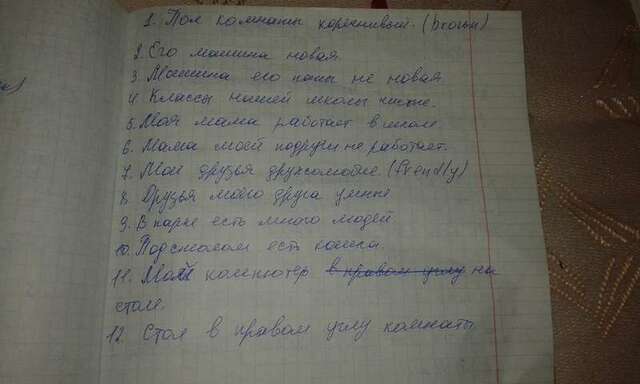 1. Пол комнаты коречнивые. (brown)
2. Его машина новая.
3. Машина его папы не новая.
4. Классы нашей школы чистые.
5. Моя мама работает в школе.
6. Мама моей подруги не работает.
7. Мои друзья дружелюбные. (friendly)
8. Друзья моего друга умные
9. В парке есть много людей.
10. Под столом есть кошка.
11. Мой компютер в правом углу на
столе.
12. Стол в правом углу комнаты